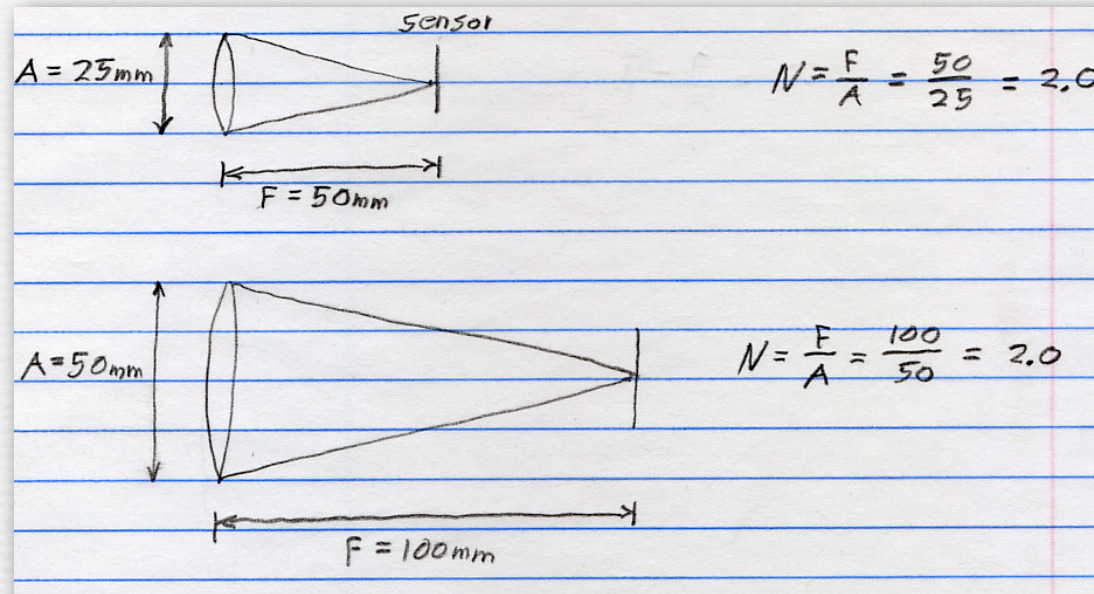 sensor
A = 25mm
N = F/A = 50/25 = 2.0
F = 50mm
A = 50mm
N = F/A = 100/50 = 2.0
F = 100mm